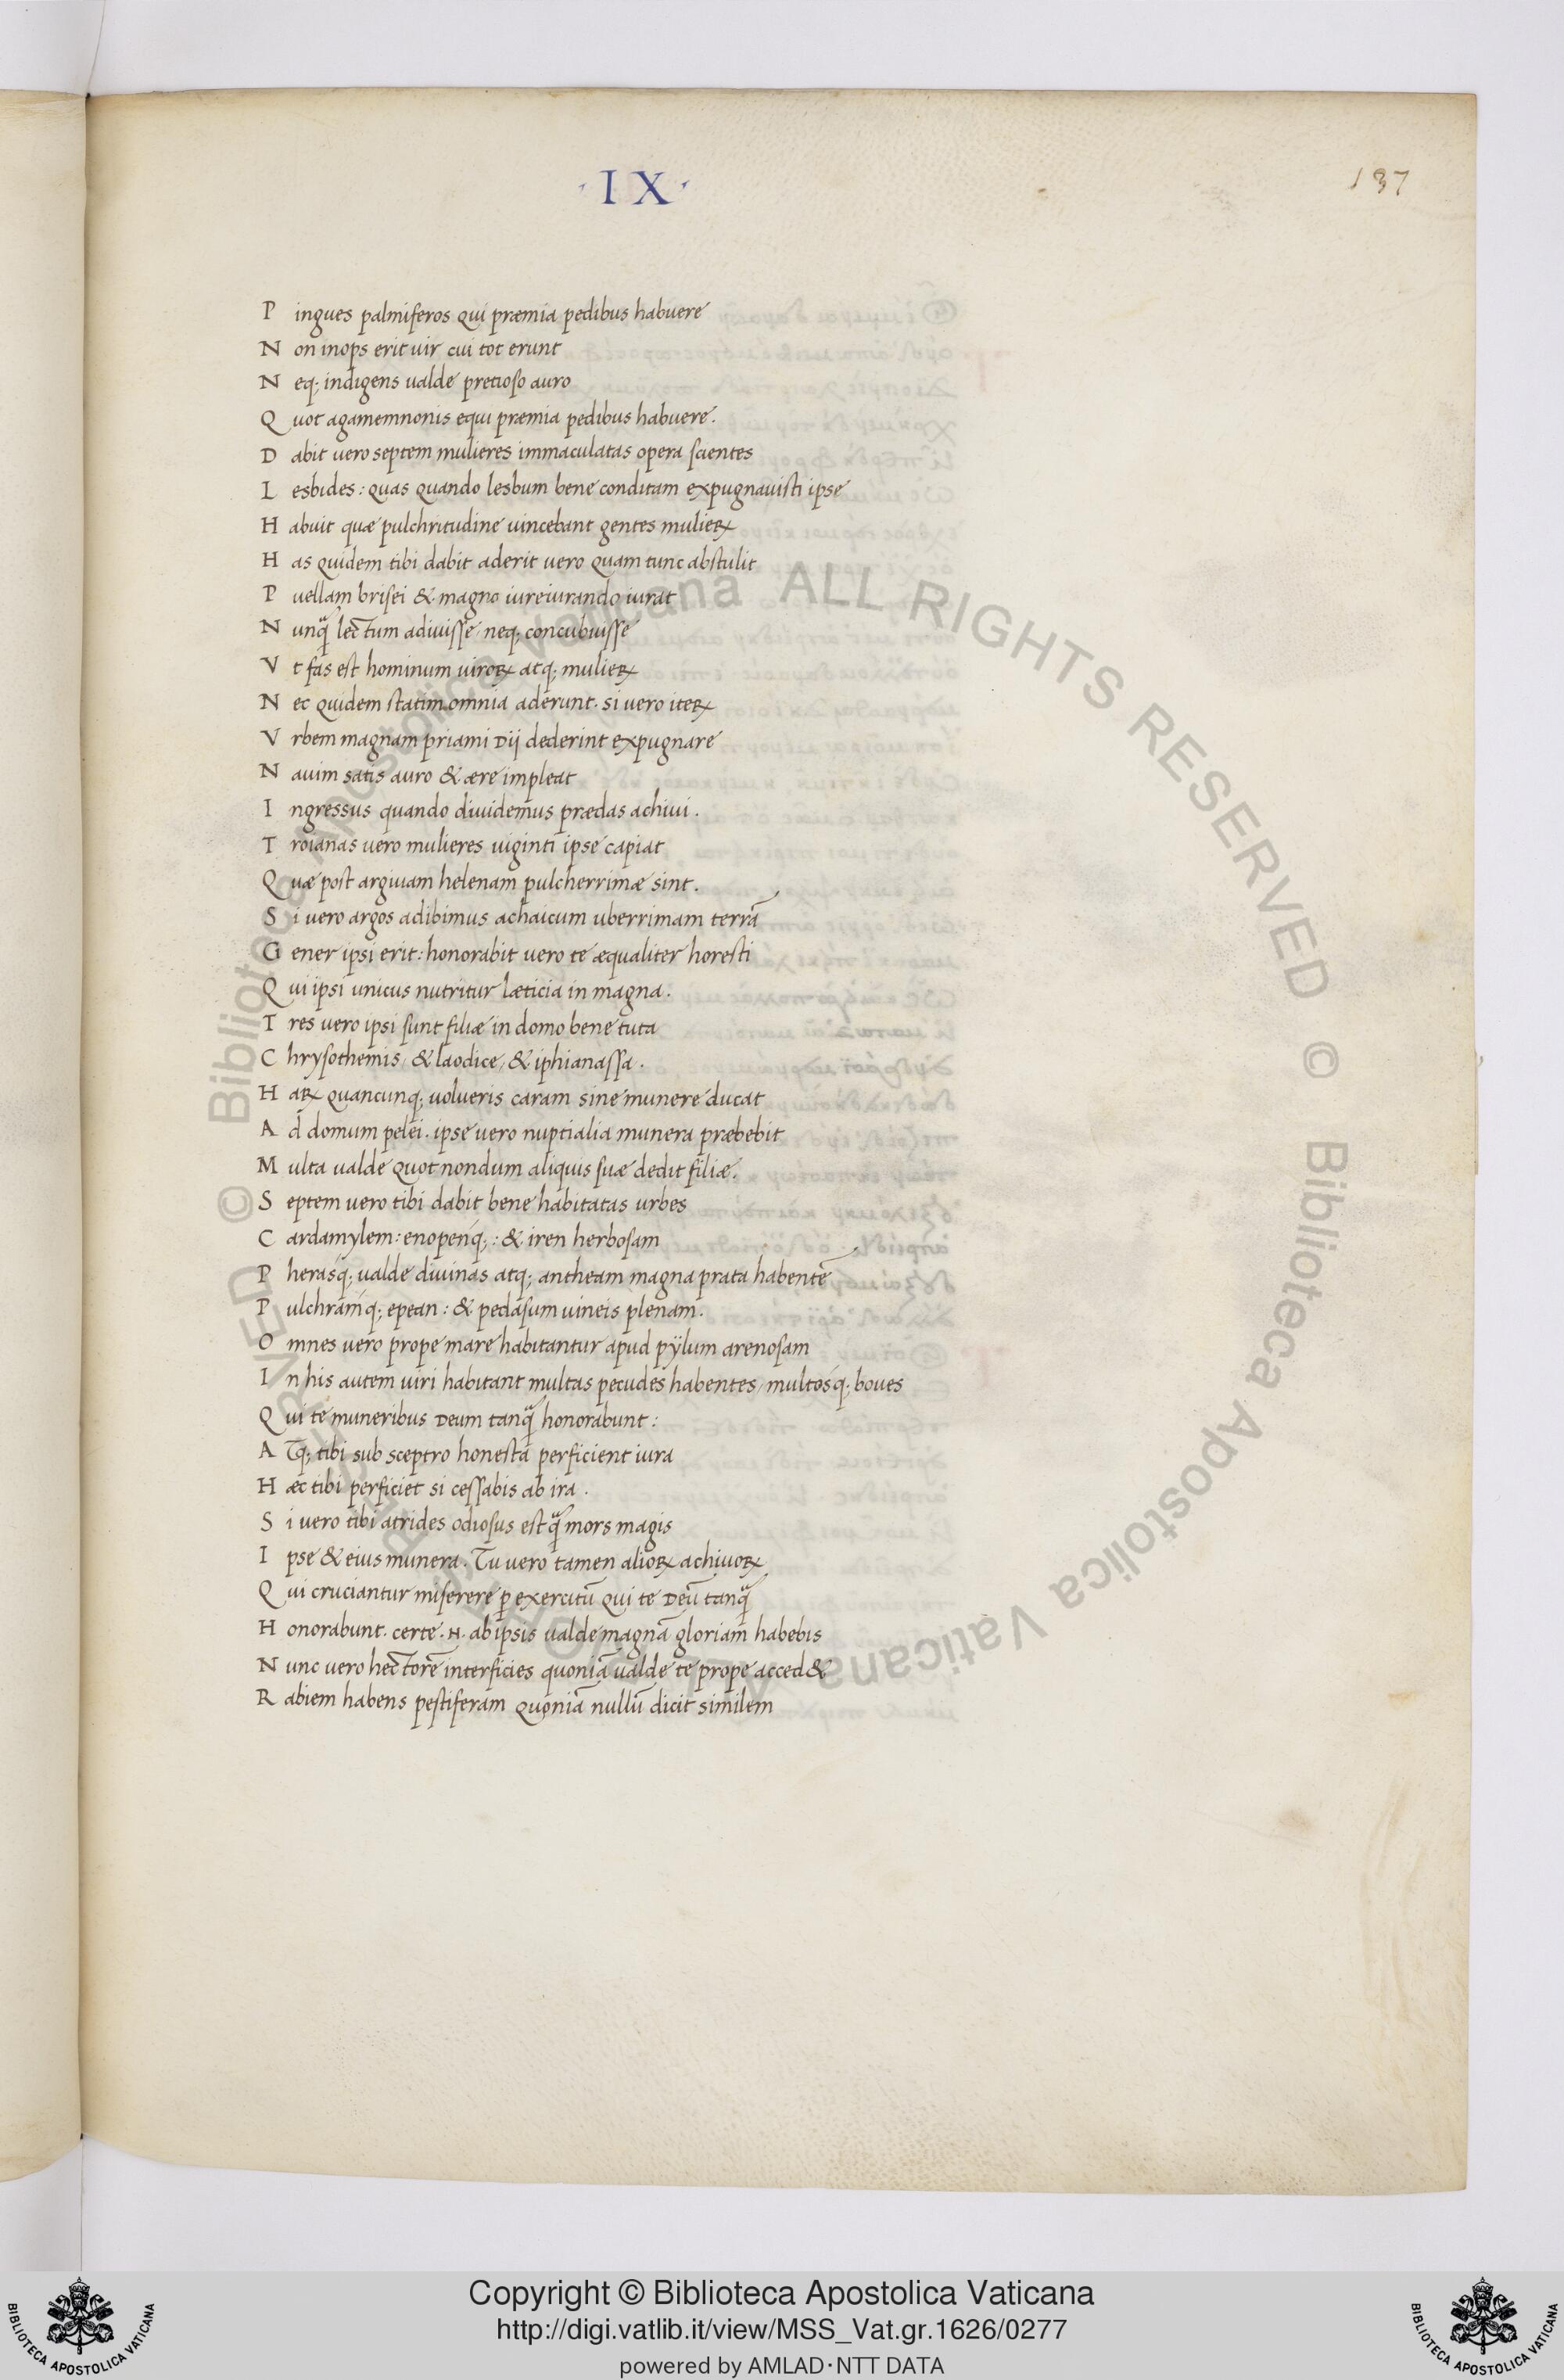 · I X ·
137
P ingues palmiferos qui præmia pedibus habuere
N on inops erit uir cui tot erunt
N eq; indigens ualde precioso auro
Q uot agamemnonis equi præmia pedibus habuere.
D abit uero septem mulieres immaculatas opera scientes
L esbides: quas quando lesbum bene conditam expugnauisti ipse
H abuit quæ pulchritudine uincebant gentes mulieꝝ
H as quidem tibi dabit aderit uero quam tunc abstulit
P uellam brisei & magno iureiurando iurat
N unq̃ lectum adiuisse / neq; concubuisse
V t fas est hominum uiroꝝ atq; mulieꝝ
N ec quidem statim omnia aderunt. si uero iteꝝ
V rbem magnam priami Dij dederint expugnare
N auim satis auro & ære impleat
I ngressus quando diuidemus prædas achiui.
T roianas uero mulieres uiginti ipse capiat
Q uæ post argiuam helenam pulcherrimæ sint.
S i uero argos adibimus achaicum uberrimam terrā
G ener ipsi erit: honorabit uero te æqualiter horesti
Q ui ipsi unicus nutritur læticia in magna.
T res uero ipsi sunt filiæ in domo bene tuta
C hrysothemis / & laodice / & iphianassa.
H aꝝ quancunq; uolueris caram sine munere ducat
A d domum pelei. ipse uero nuptialia munera præbebit
M ulta ualde quot nondum aliquis suæ dedit filiæ.
S eptem uero tibi dabit bene habitatas urbes
C ardamylem: enopenq;: & iren herbosam
P herasq; ualde diuinas atq; antheam magna prata habentē
P ulchramq; epean: & pedasum uineis plenam.
O mnes uero prope mare habitantur apud pÿlum arenosam
I n his autem uiri habitant multas pecudes habentes / multosq; boues
Q ui te muneribus Deum tanq̃ honorabunt:
A tq; tibi sub sceptro honesta perficient iura
H æc tibi perficiet si cessabis ab ira.
S i uero tibi atrides odiosus est q̃ mors magis
I pse & eius munera. Tu uero tamen alioꝝ achiuoꝝ
Q ui cruciantur miserere ꝑ exercitū qui te Deū tanq̃
H onorabunt. certe. н. ab ipsis ualde magnā gloriam habebis
N unc uero hectorē interficies quoniā ualde te prope acced&
R abiem habens pestiferam quoniā nullū dicit similem
© Biblioteca Apostolica Vaticana ALL RIGHTS RESERVED © Biblioteca Apostolica Vaticana ALL RIGHTS RESERVED
Copyright © Biblioteca Apostolica Vaticana
http://digi.vatlib.it/view/MSS_Vat.gr.1626/0277
powered by AMLAD·NTT DATA
BIBLIOTECA APOSTOLICA VATICANA
BIBLIOTECA APOSTOLICA VATICANA